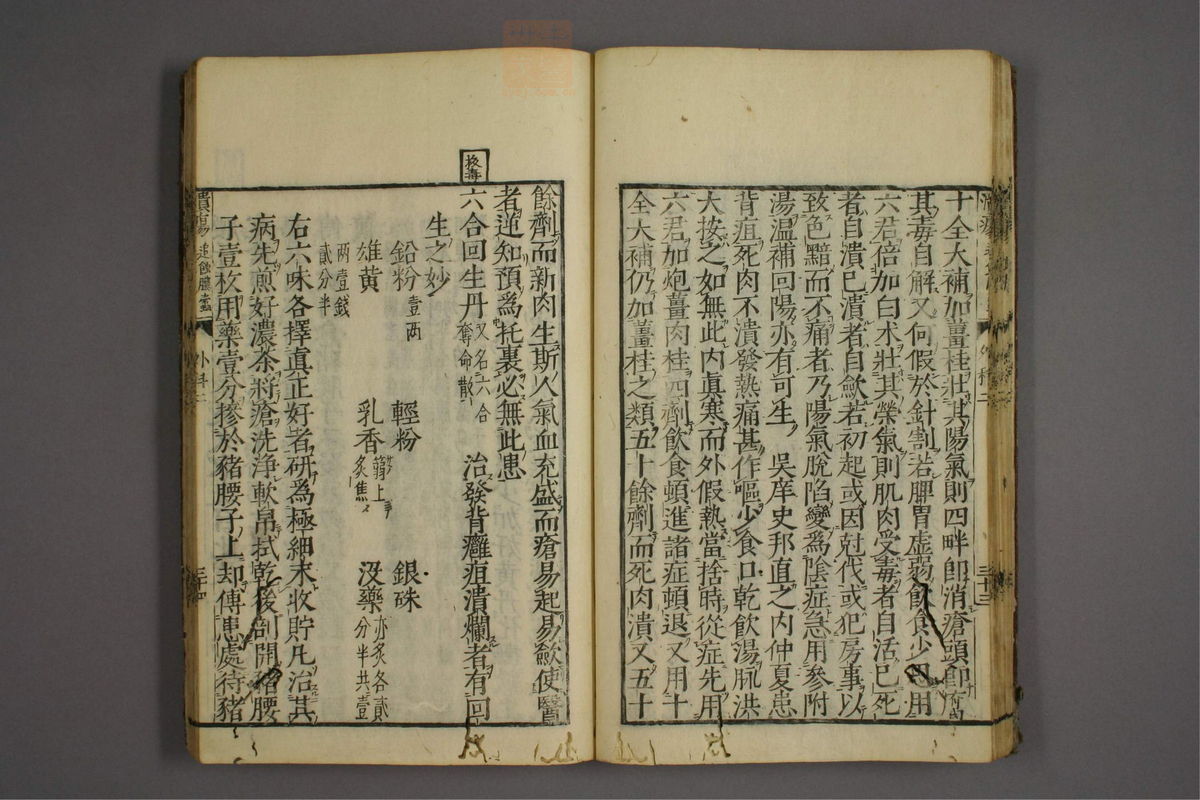 十全大補加薑桂壯其陽氣則四畔即消瘡頭即腐
其毒自解又何假於針割若脾胃虛弱飲食少思用
六君倍加白朮壯其榮氣則肌肉受毒者自活已死
者自潰已潰者自斂若初起或因尅伐或犯房事以
致色黯而不痛者乃陽氣脫陷變爲陰症急用參附
湯溫補回陽亦有可生 吳庠史邦直之內仲夏患
背疽死肉不潰發熱痛甚作嘔少食口乾飲湯脉洪
大按之如無此內眞寒而外假熱當捨時從症先用
六君加炮薑肉桂四劑飲食頓進諸症頓退又用十
全大補仍加薑桂之類五十餘劑而死肉潰又五十
餘劑而新肉生斯人氣血充盛而瘡易起易斂使醫
者逆知預爲托裏必無此患
拔毒
六合回生丹 又名六合奪命散 治發背癰疽潰爛者有回
生之妙
鉛粉壹兩 輕粉 銀硃
雄黃 乳香篛上炙焦 沒藥亦炙各貳分半共壹
兩壹錢貳分半
右六味各擇眞正好者研爲極細末收貯凡治其
病先煎好濃茶將瘡洗浄軟帛拭乾後剖開豬腰
子壹枚用藥壹分摻於豬腰子上却傅患處待豬
潰瘍 外科二 三十四